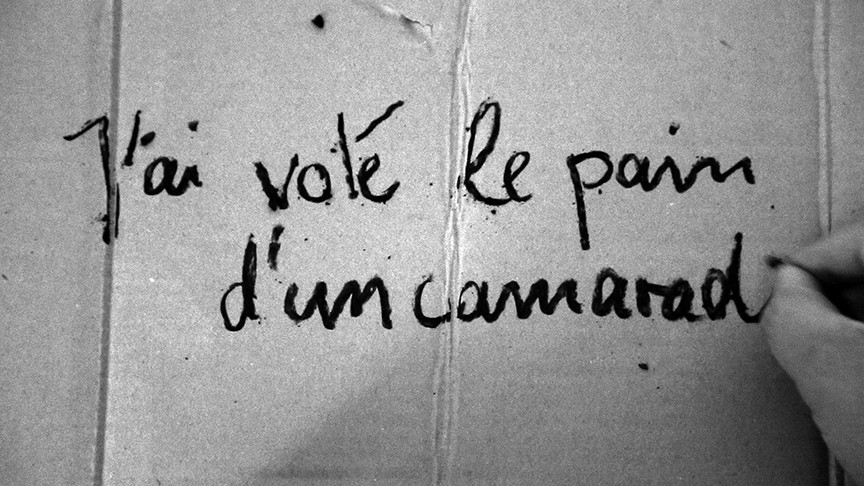 J'ai volé le pain
d'un camarad